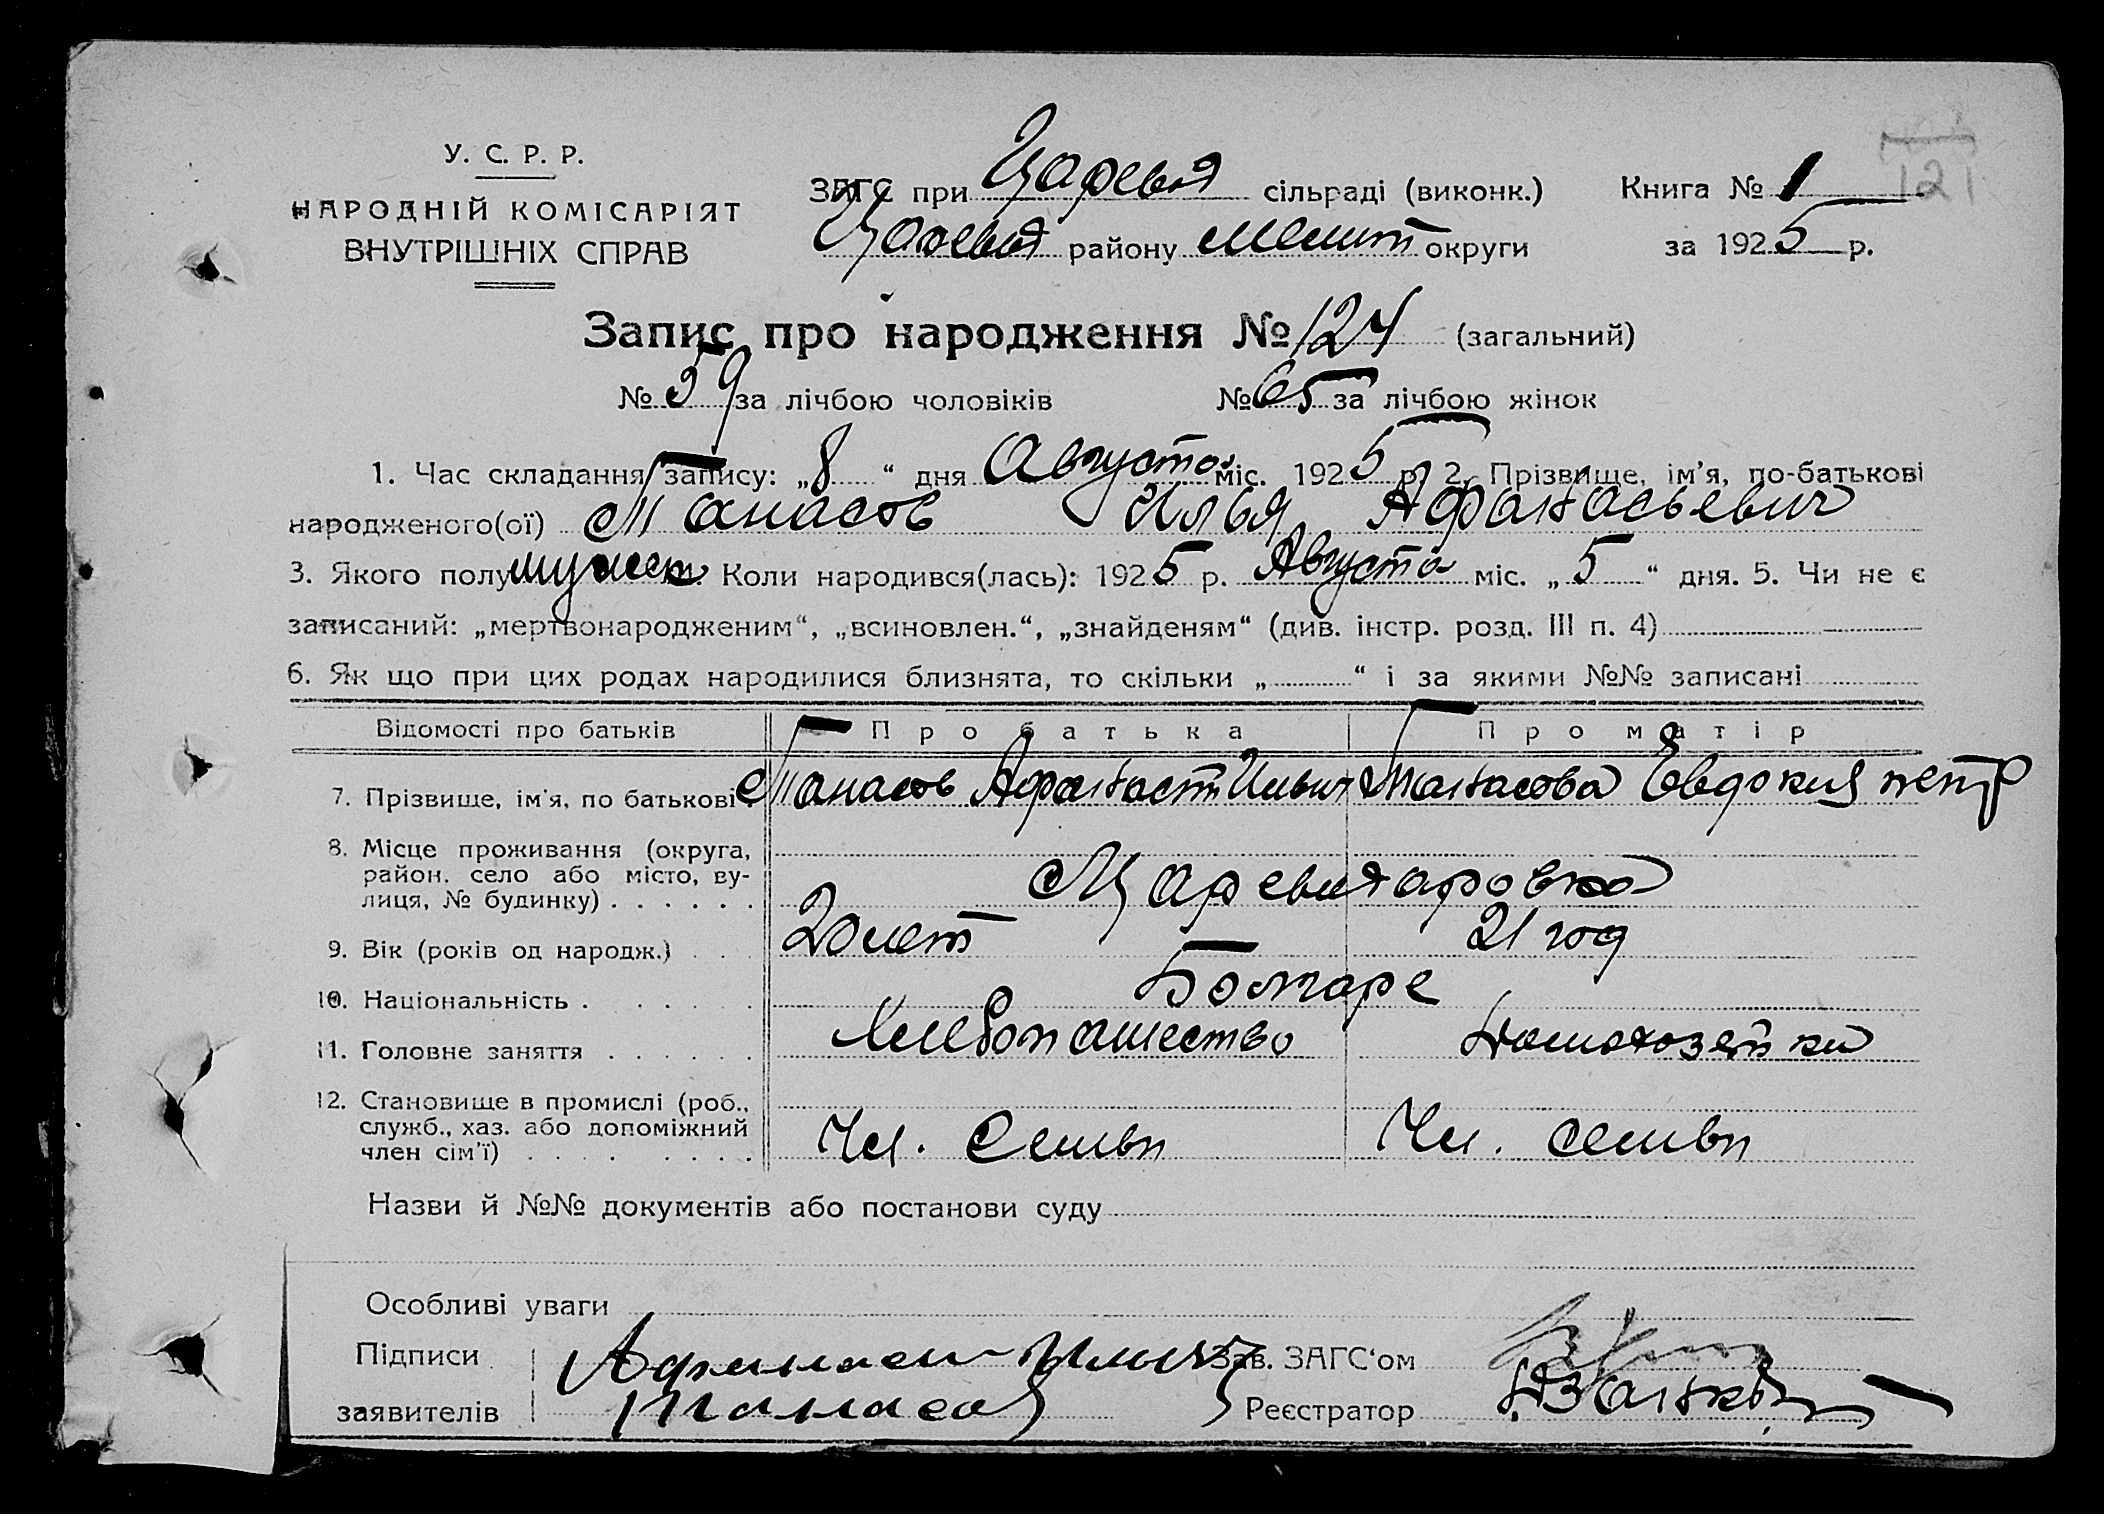 121
У. С. Р. Р.
НАРОДНІЙ КОМІСАРІЯТ
ВНУТРІШНІХ СПРАВ
ЗАГС при Царевод сільраді (виконк.) Книга № 1
Царевод району Мелит округи за 1925 р.
Запис про народження № 124 (загальний)
№ 59 за лічбою чоловіків № 65 за лічбою жінок
1. Час складання запису: „8“ дня Августа міс. 1925 р. 2. Прізвище, ім'я, по-батькові
народженого(ої) Танасов Илья Афанасьевич
3. Якого полу мужск Коли народився(лась): 1925 р. Августа міс. „5“ дня. 5. Чи не є
записаний: „мертвонародженим“, „всиновлен.“, „знайденям“ (див. інстр. розд. III п. 4)
6. Як що при цих родах народилися близнята, то скільки „ “ і за якими №№ записані
Відомості про батьків Про батька Про матір
7. Прізвище, ім'я, по батькові Танасов Афанасий Ильич Танасова Евдокия петр
8. Місце проживання (округа,
район, село або місто, ву-
лиця, № будинку) . . . . . .
9. Вік (років од народж.) . . . 20 лет 21 год
10. Національність . . . . . Болгаре
11. Головне заняття . . . . . . Хлебопашество Домохозяйка
12. Становище в промислі (роб.,
служб., хаз. або допоміжний
член сім'ї) . . . . . . . . Чл. Семьи Чл. семьи
Назви й №№ документів або постанови суду
Особливі уваги
Підписи Афанаси Ильич Зав. ЗАГС'ом
заявителів Танасов Реєстратор